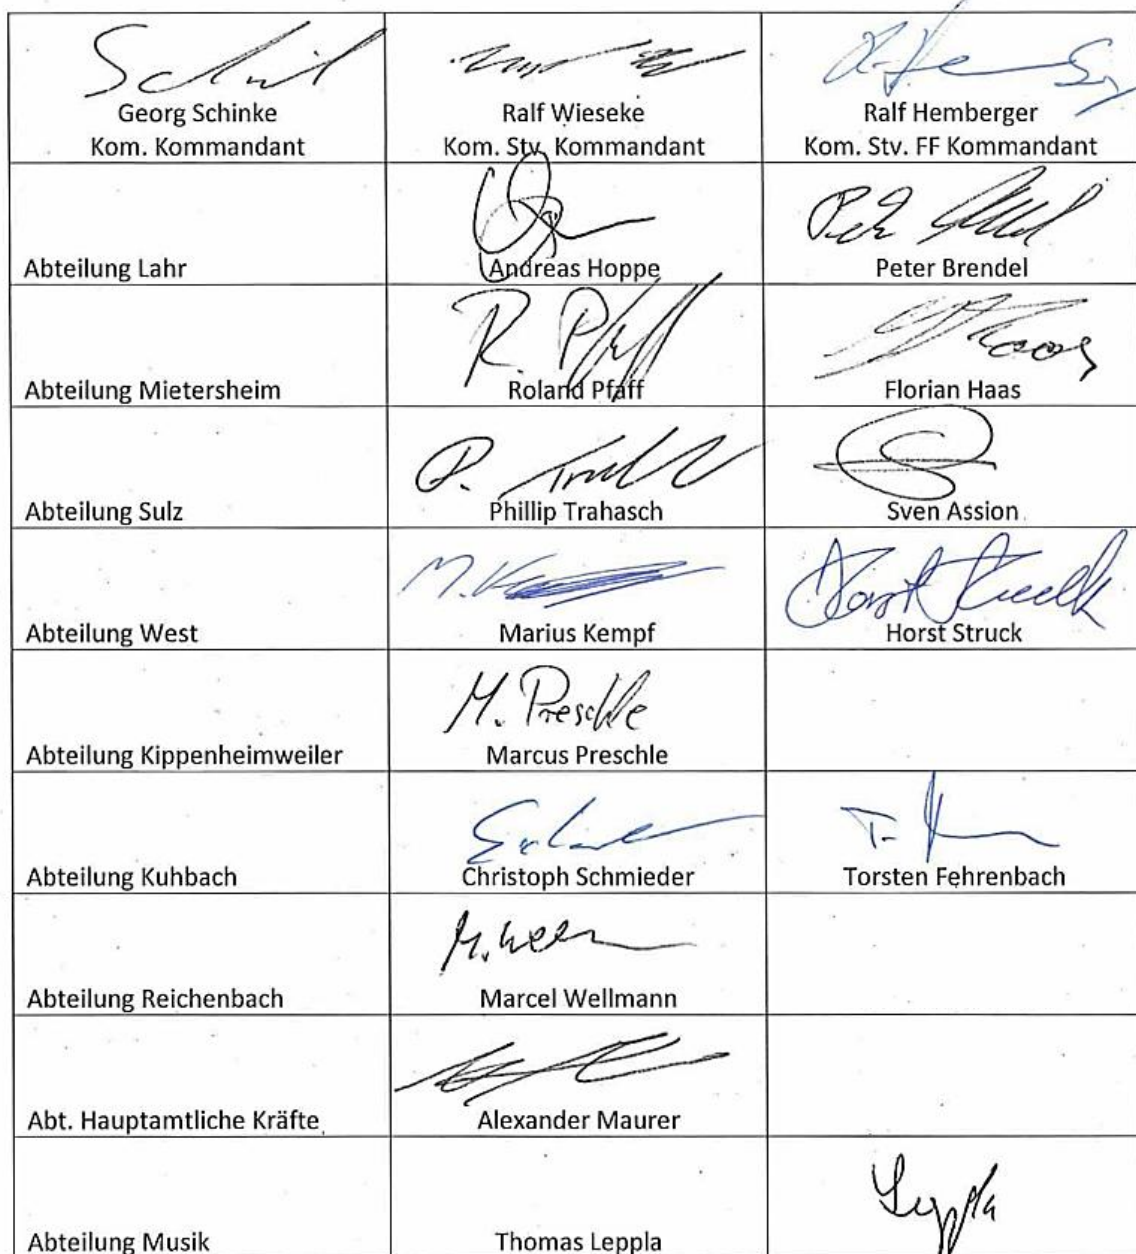 Georg Schinke
Kom. Kommandant
Ralf Wieseke
Kom. Stv. Kommandant
Ralf Hemberger
Kom. Stv. FF Kommandant
Abteilung Lahr
Andreas Hoppe
Peter Brendel
Abteilung Mietersheim
R. Pfaff
Roland Pfaff
Florian Haas
Abteilung Sulz
Phillip Trahasch
Sven Assion
Abteilung West
Marius Kempf
Horst Struck
Horst Struck
Abteilung Kippenheimweiler
M. Preschle
Marcus Preschle
Abteilung Kuhbach
Christoph Schmieder
Torsten Fehrenbach
Abteilung Reichenbach
Marcel Wellmann
Abt. Hauptamtliche Kräfte
Alexander Maurer
Leppla
Abteilung Musik
Thomas Leppla